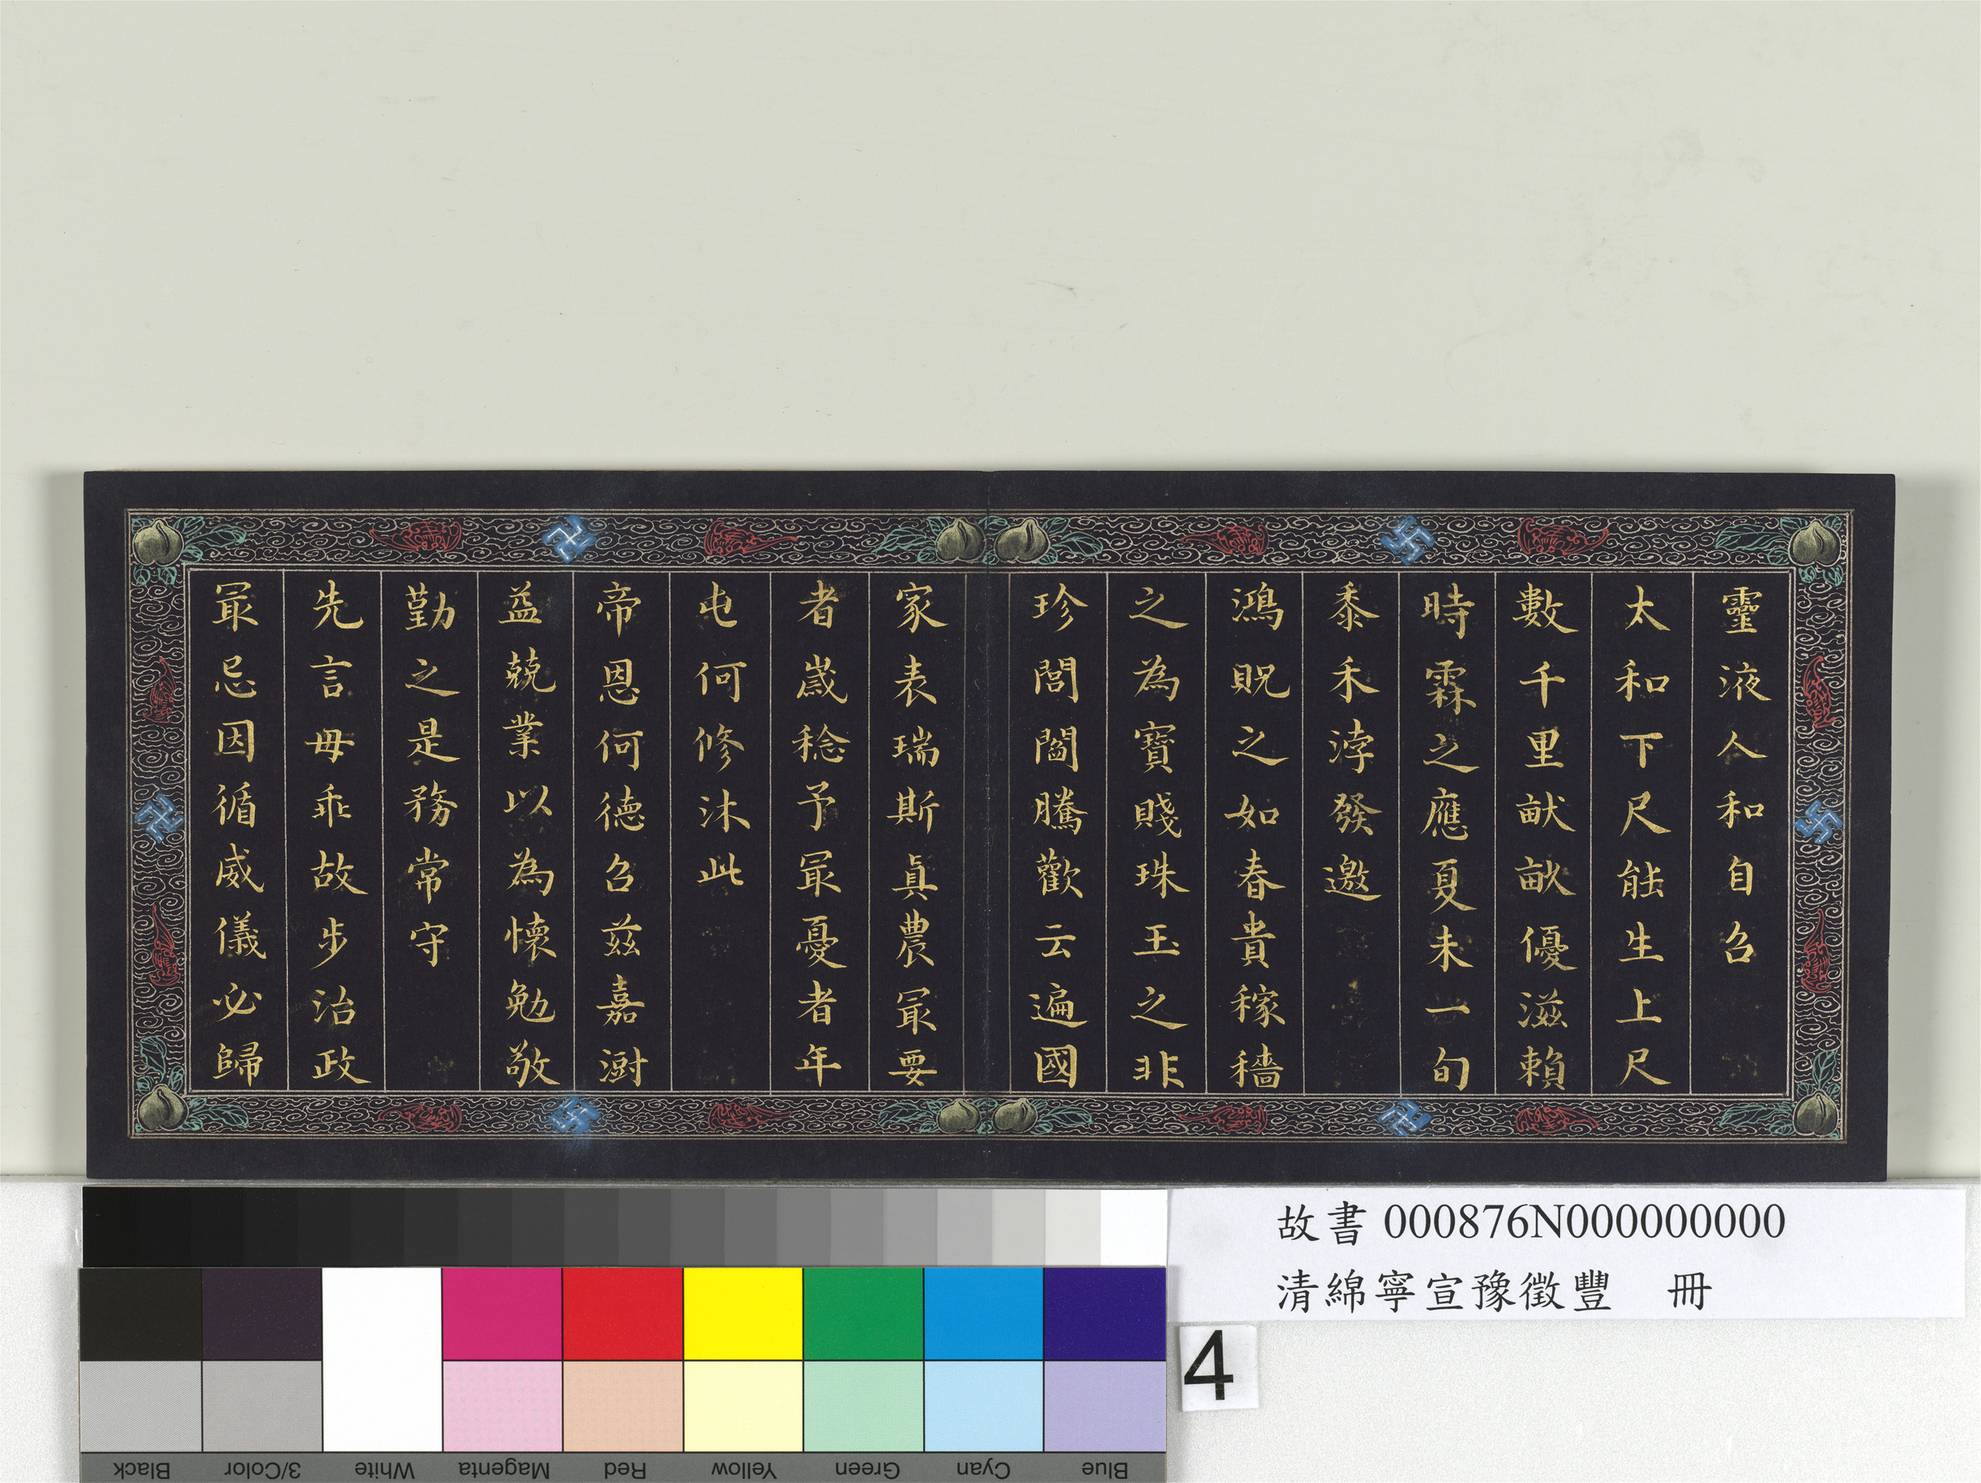 靈液人和自召
太和下尺能生上尺
數千里畎畝優滋賴
時霖之應夏未一旬
黍禾浡發邀
鴻貺之如春貴稼穡
之為寶賤珠玉之非
珍閭閻騰歡云遍國
家表瑞斯真農冣要
者歲稔予冣憂者年
屯何修沐此
帝恩何德召茲嘉澍
益兢業以為懷勉敬
勤之是務常守
先言毋乖故步治政
冣忌因循威儀必歸
故書 000876N000000000
清綿寧宣豫徵豐 冊
4
Black
3/Color
White
Magenta
Red
Yellow
Green
Cyan
Blue